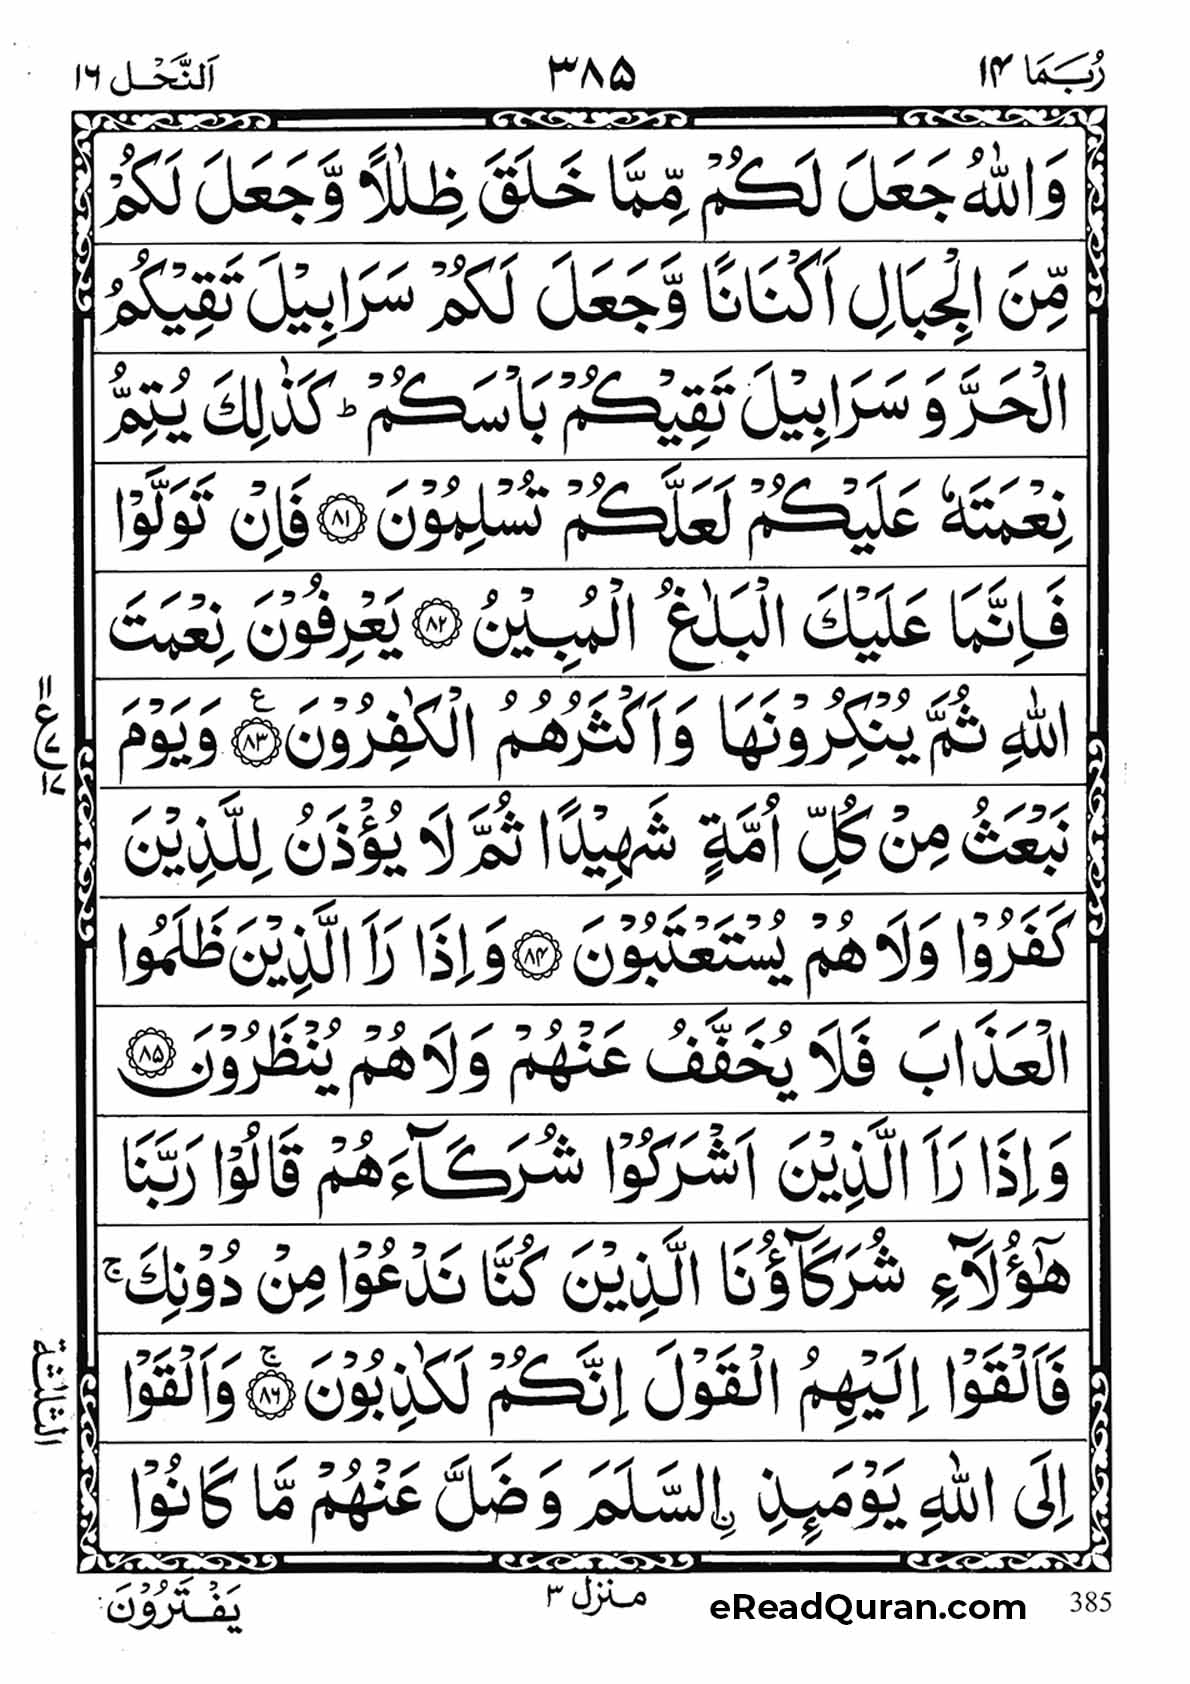 رُبَمَا ١٤
٣٨٥
اَلنَّحْل ١٦
وَاللّٰهُ جَعَلَ لَكُمْ مِّمَّا خَلَقَ ظِلٰلًا وَّجَعَلَ لَكُمْ
مِّنَ الْجِبَالِ اَكْنَانًا وَّجَعَلَ لَكُمْ سَرَابِيْلَ تَقِيْكُمُ
الْحَرَّ وَسَرَابِيْلَ تَقِيْكُمْ بَاْسَكُمْ ؕ كَذٰلِكَ يُتِمُّ
نِعْمَتَهٗ عَلَيْكُمْ لَعَلَّكُمْ تُسْلِمُوْنَ ﴿٨١﴾ فَاِنْ تَوَلَّوْا
فَاِنَّمَا عَلَيْكَ الْبَلٰغُ الْمُبِيْنُ ﴿٨٢﴾ يَعْرِفُوْنَ نِعْمَتَ
اللّٰهِ ثُمَّ يُنْكِرُوْنَهَا وَاَكْثَرُهُمُ الْكٰفِرُوْنَ ﴿٨٣﴾ ع وَيَوْمَ
نَبْعَثُ مِنْ كُلِّ اُمَّةٍ شَهِيْدًا ثُمَّ لَا يُؤْذَنُ لِلَّذِيْنَ
كَفَرُوْا وَلَا هُمْ يُسْتَعْتَبُوْنَ ﴿٨٤﴾ وَاِذَا رَاَ الَّذِيْنَ ظَلَمُوا
الْعَذَابَ فَلَا يُخَفَّفُ عَنْهُمْ وَلَا هُمْ يُنْظَرُوْنَ ﴿٨٥﴾
وَاِذَا رَاَ الَّذِيْنَ اَشْرَكُوْا شُرَكَآءَهُمْ قَالُوْا رَبَّنَا
هٰٓؤُلَآءِ شُرَكَآؤُنَا الَّذِيْنَ كُنَّا نَدْعُوْا مِنْ دُوْنِكَ ۚ
فَاَلْقَوْا اِلَيْهِمُ الْقَوْلَ اِنَّكُمْ لَكٰذِبُوْنَ ﴿٨٦﴾ ۚ وَاَلْقَوْا
اِلَى اللّٰهِ يَوْمَئِذِ ۣالسَّلَمَ وَضَلَّ عَنْهُمْ مَّا كَانُوْا
يَفْتَرُوْنَ
منزل ٣
eReadQuran.com
385
الثلثة